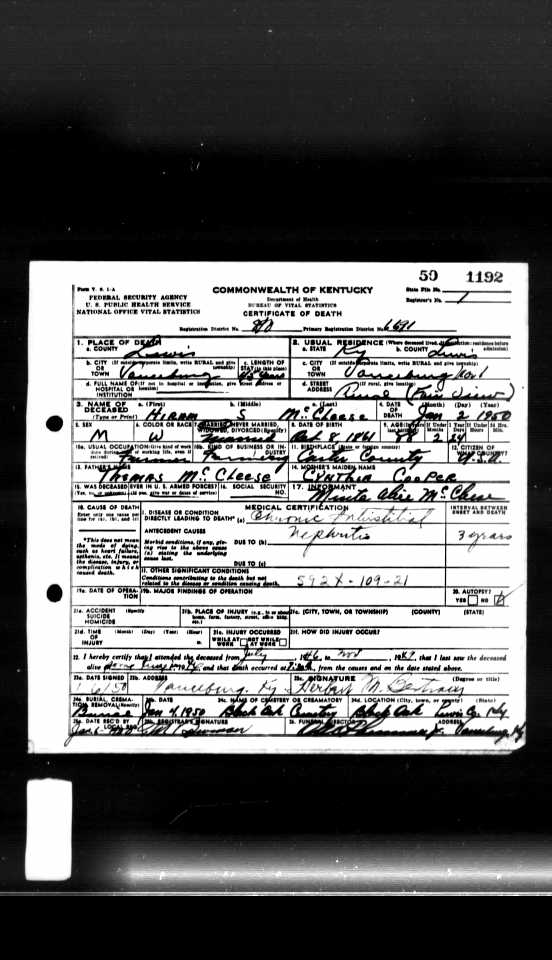 59 1192
Form V. S. 1-A
FEDERAL SECURITY AGENCY
U. S. PUBLIC HEALTH SERVICE
NATIONAL OFFICE VITAL STATISTICS
COMMONWEALTH OF KENTUCKY
Department of Health
BUREAU OF VITAL STATISTICS
CERTIFICATE OF DEATH
State File No.
Registrar's No. 1
Registration District No. Primary Registration District No. 6591
1. PLACE OF DEATH
a. COUNTY Lewis
2. USUAL RESIDENCE (Where deceased lived. If institution: residence before admission).
a. STATE Ky b. COUNTY Lewis
b. CITY (If outside corporate limits, write RURAL and give township) OR TOWN Vanceburg
c. LENGTH OF STAY (in this place) 45 years
c. CITY (If outside corporate limits, write RURAL and give township) OR TOWN Vanceburg
d. FULL NAME OF (If not in hospital or institution, give street address or location) HOSPITAL OR INSTITUTION
d. STREET ADDRESS (If rural, give location) Rural (Fair View)
3. NAME OF DECEASED (Type or Print)
a. (First) HIRAM b. (Middle) S c. (Last) McCleese
4. DATE OF DEATH (Month) (Day) (Year) Jan 2 1950
5. SEX M
6. COLOR OR RACE W
7. MARRIED, NEVER MARRIED, WIDOWED, DIVORCED (Specify) Married
8. DATE OF BIRTH Oct 8, 1861
9. AGE (In years last birthday) 88 If Under 1 Year Months 2 Days 24 If Under 24 Hrs Hours Min.
10a. USUAL OCCUPATION (Give kind of work done during most of working life, even if retired) Farmer
10b. KIND OF BUSINESS OR INDUSTRY Farming
11. BIRTHPLACE (State or foreign country) Carter County
12. CITIZEN OF WHAT COUNTRY? U.S.A.
13. FATHER'S NAME THOMAS McCLEESE
14. MOTHER'S MAIDEN NAME CYNTHIA COOPER
15. WAS DECEASED EVER IN U. S. ARMED FORCES? (Yes, no, or unknown) (If yes, give war or dates of service)
16. SOCIAL SECURITY NO.
17. INFORMANT
18. CAUSE OF DEATH
Enter only one cause per line for (a), (b), and (c)
MEDICAL CERTIFICATION
INTERVAL BETWEEN ONSET AND DEATH
I. DISEASE OR CONDITION DIRECTLY LEADING TO DEATH* (a) Chronic Intistitial
Nephritis 3 years
*This does not mean the mode of dying, such as heart failure, asthenia, etc. It means the disease, injury, or complication which caused death.
ANTECEDENT CAUSES
Morbid conditions, if any, giving rise to the above cause (a) stating the underlying cause last.
DUE TO (b)
DUE TO (c)
II. OTHER SIGNIFICANT CONDITIONS
Conditions contributing to the death but not related to the disease or condition causing death.
592X-109-21
19a. DATE OF OPERATION
19b. MAJOR FINDINGS OF OPERATION
20. AUTOPSY? YES NO
21a. ACCIDENT SUICIDE HOMICIDE (Specify)
21b. PLACE OF INJURY (e.g., in or about home, farm, factory, street, office bldg., etc.)
21c. (CITY, TOWN, OR TOWNSHIP) (COUNTY) (STATE)
21d. TIME OF INJURY (Month) (Day) (Year) (Hour)
21e. INJURY OCCURRED WHILE AT WORK NOT WHILE AT WORK
21f. HOW DID INJURY OCCUR?
22. I hereby certify that I attended the deceased from July, 1946, to Nov, 1949, that I last saw the deceased
alive and that death occurred at from the causes and on the date stated above.
23a. DATE SIGNED 1/6/50
23b. ADDRESS Vanceburg, Ky
23c. SIGNATURE (Degree or title) Herbert M.
24a. BURIAL, CREMATION, REMOVAL (Specify) Burial
24b. DATE Jan 4, 1950
24c. NAME OF CEMETERY OR CREMATORY Black Oak Cemetery
24d. LOCATION (City, town, or county) (State) Black Oak Lewis Co. Ky
25a. DATE REC'D BY LOCAL REG.
25b. REGISTRAR'S SIGNATURE
26. FUNERAL DIRECTOR ADDRESS Vanceburg, Ky